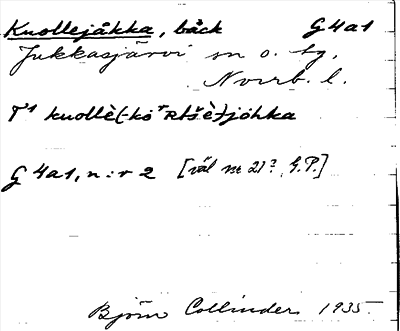 Kuollejåkka, bäck G4a1
Jukkasjärvi sn o. tg,
Norrb. l.
T¹ kuollè(-kò
G4a1, n:r 2 [väl nr 21? G.P.]
Björn Collinder 1935